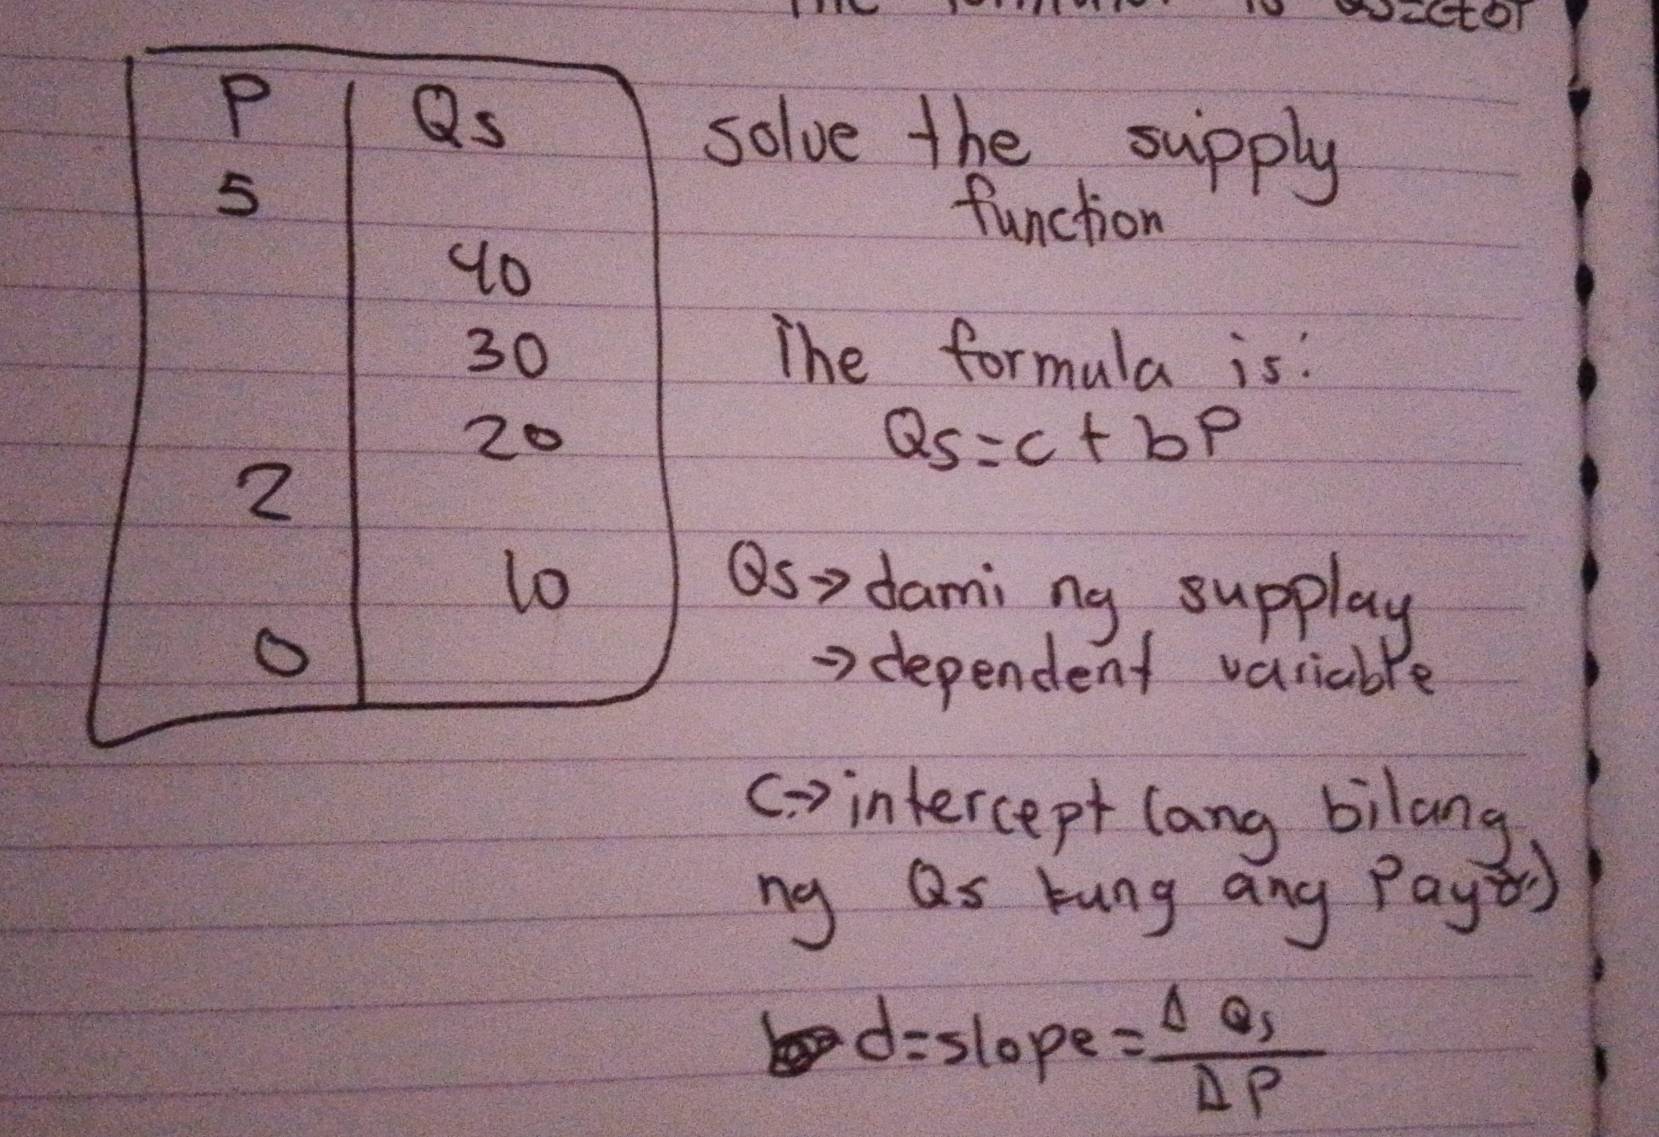 P Qs
5
40
30
20
2
10
0
solve the supply
function
The formula is:
Qs=c+bP
Qs→dami ng supplay
→dependent variable
C→intercept (ang bilang
ng Qs kung ang P ay 0)
d=slope=ΔQs
ΔP